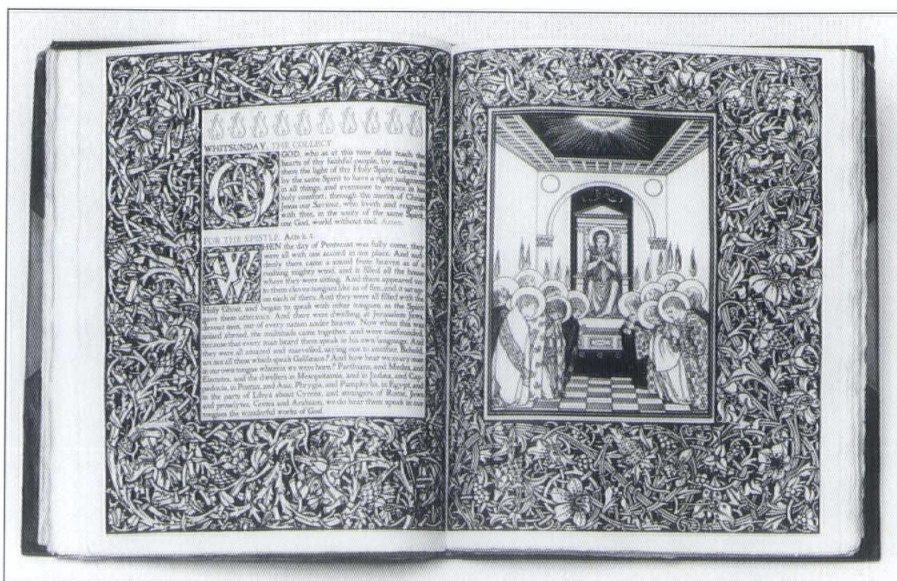 WHITSUNDAY. THE COLLECT
O GOD, who as at this time didst teach the
hearts of thy faithful people, by sending to
them the light of thy Holy Spirit; Grant us
by the same Spirit to have a right judgment
in all things, and evermore to rejoice in his
holy comfort; through the merits of Christ
Jesus our Saviour, who liveth and reigneth
with thee, in the unity of the same Spirit,
one God, world without end. Amen.
FOR THE EPISTLE. Acts ii. 1.
WHEN the day of Pentecost was fully come, they
were all with one accord in one place. And sud-
denly there came a sound from heaven as of a
rushing mighty wind, and it filled all the house
where they were sitting. And there appeared un-
to them cloven tongues, like as of fire, and it sat up-
on each of them. And they were all filled with the
Holy Ghost, and began to speak with other tongues, as the Spirit
gave them utterance. And there were dwelling at Jerusalem Jews,
devout men, out of every nation under heaven. Now when this was
noised abroad, the multitude came together, and were confounded,
because that every man heard them speak in his own language. And
they were all amazed and marvelled, saying one to another, Behold,
are not all these which speak Galilæans? And how hear we every man
in our own tongue wherein we were born? Parthians, and Medes, and
Elamites, and the dwellers in Mesopotamia, and in Judæa, and Cap-
padocia, in Pontus, and Asia, Phrygia, and Pamphylia, in Egypt, and
in the parts of Libya about Cyrene, and strangers of Rome, Jews
and proselytes, Cretes and Arabians, we do hear them speak in our
tongues the wonderful works of God.